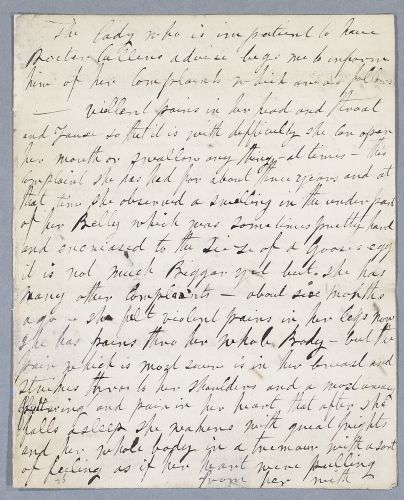 The Lady who is impatient to have
Doctor Cullens advise begs me to inform
him of her Complaints which are as follows
— violent pains in her head and throat
and Jaws so that it is with difficulty she can open
her mouth or swallow any thing – at times – this
complaint she has had for about three years and at
that time she observed a swelling in the under part
of her Belly which was sometimes pretty hard
and encreased to the Size of a Goose's egg
it is not much Biggar yet but she has
many other Complaints – about six months
ago she felt violent pains in her legs now
she has pains thro her whole Body – but the
pain which is most severe is in her breast and
strikes thro to her shoulders and a most uneasy
and pain in her heart, that after she
falls asleep she wakens with great frights
and her whole body in a tremour with a sort
of feeling as if her heart were pulling
from her with